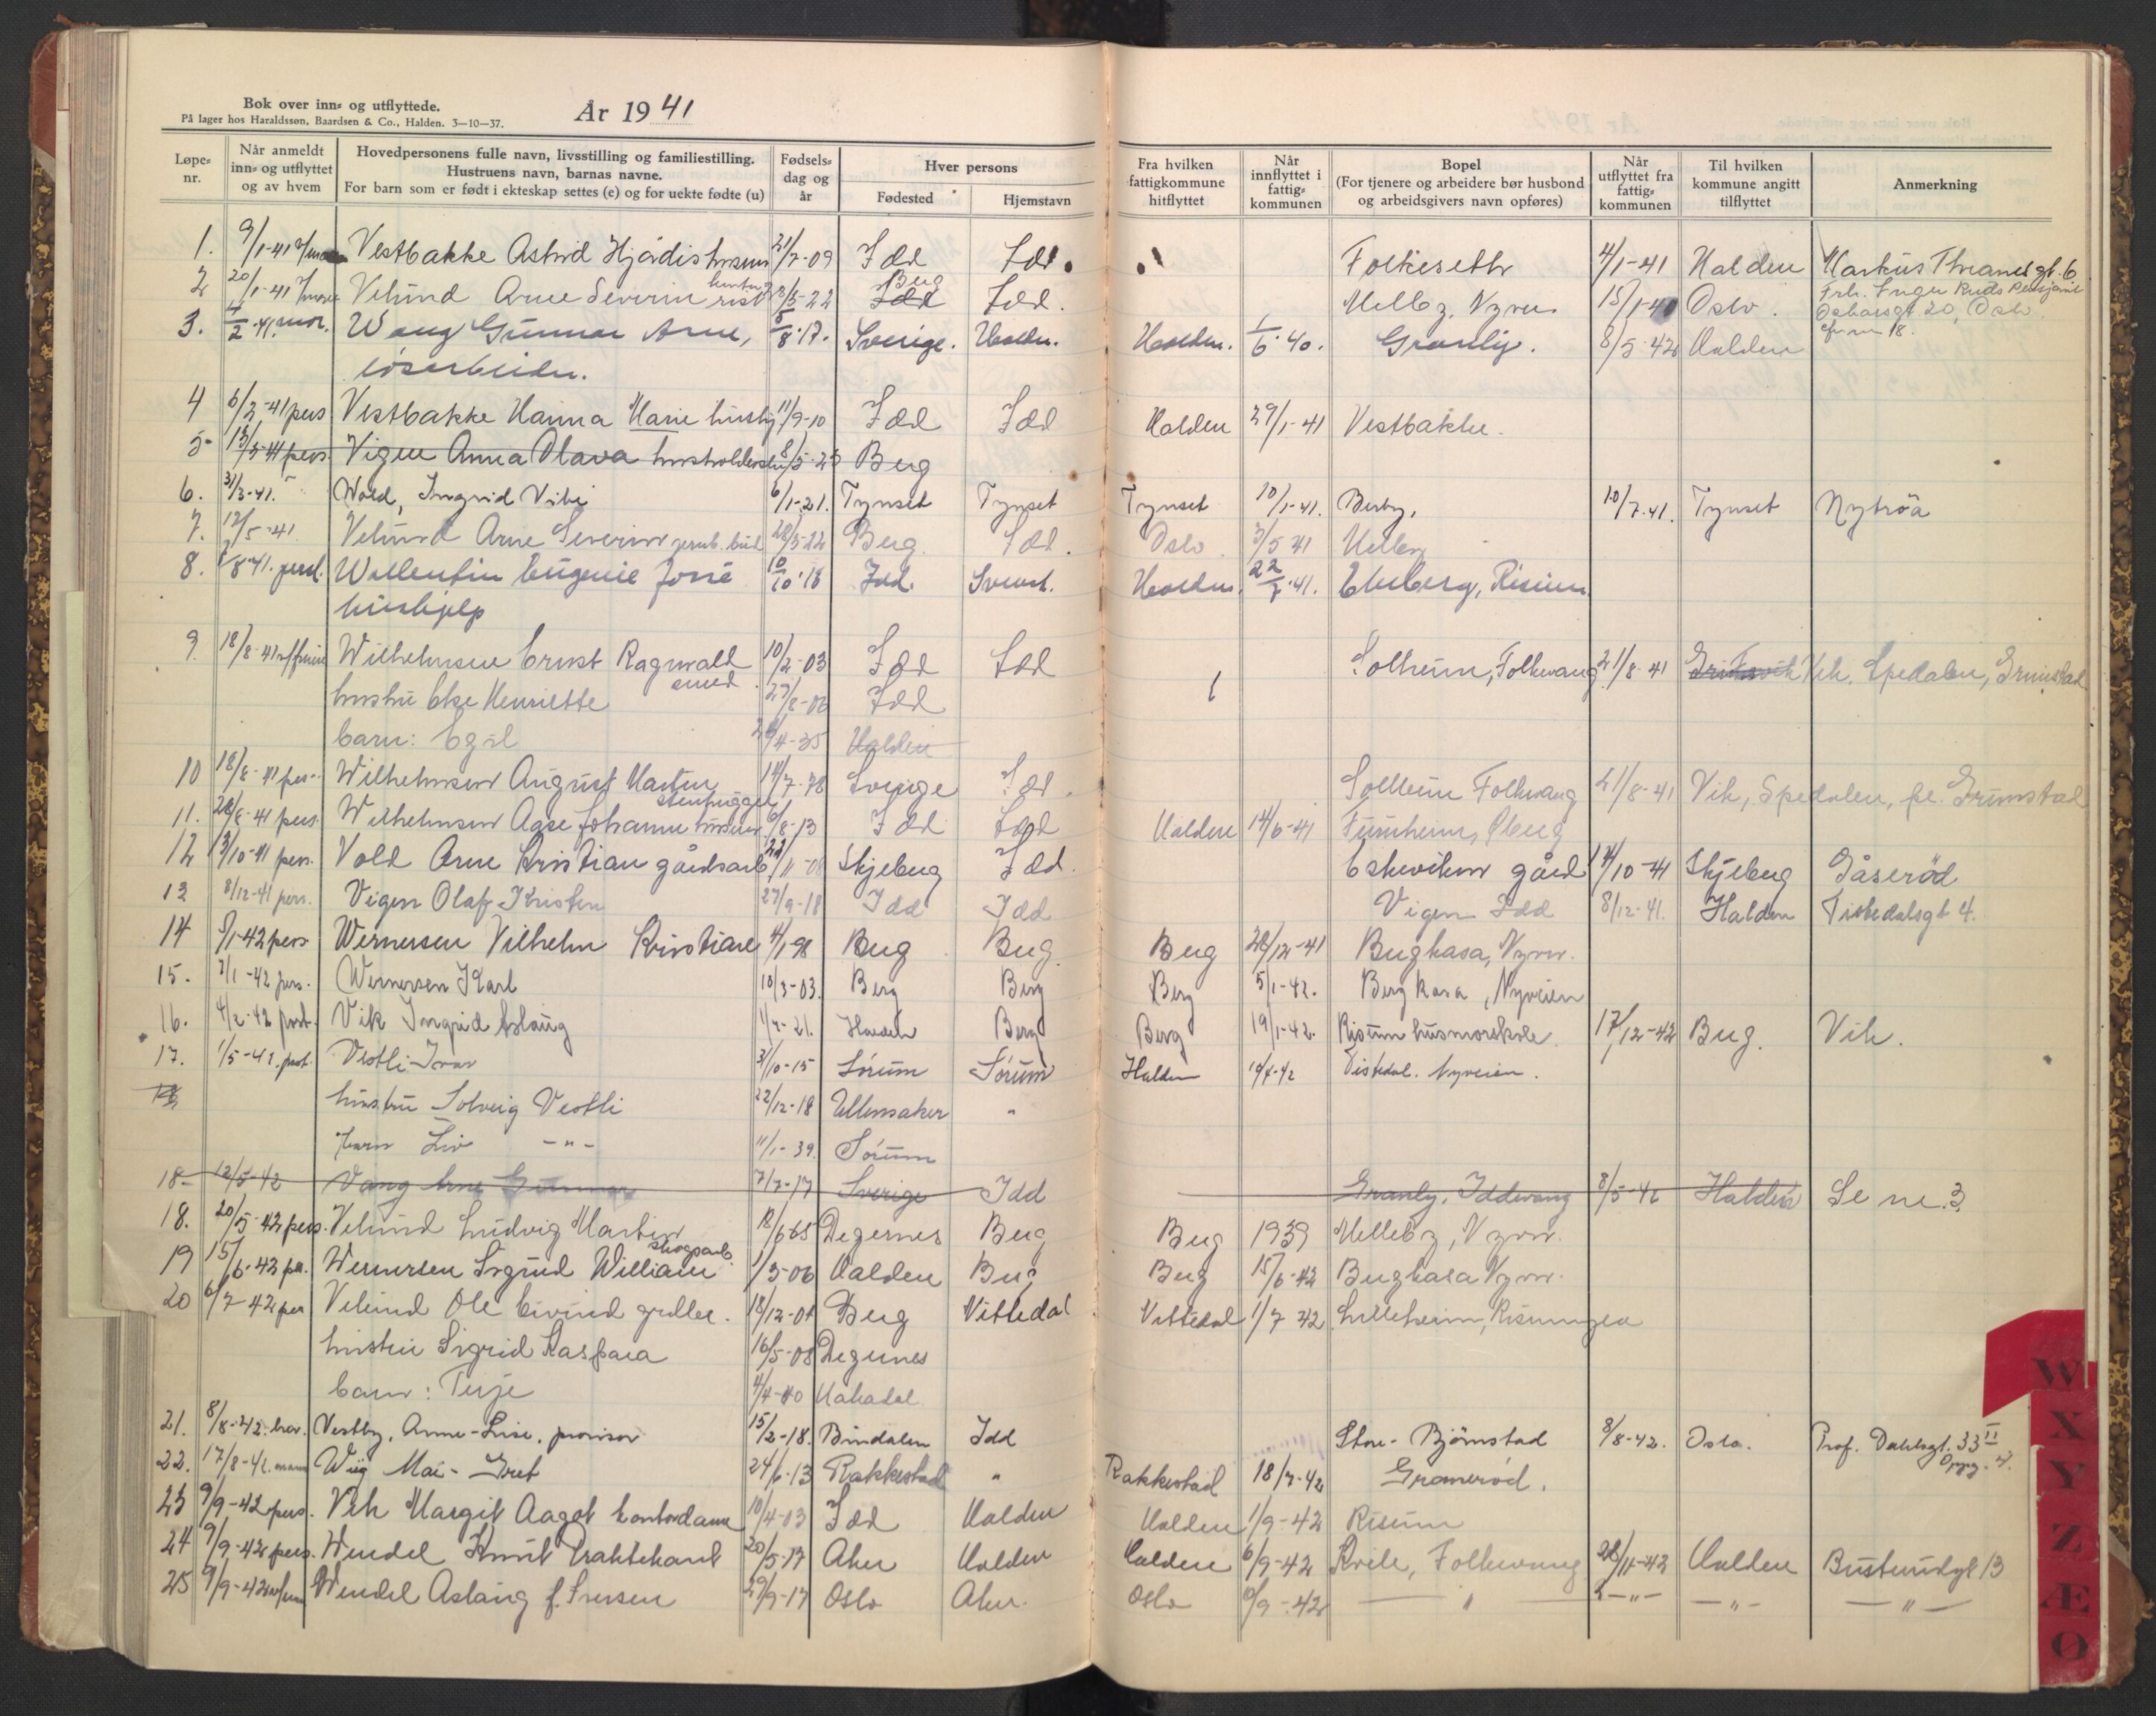 Bok over inn- og utflyttede.
På lager hos Haraldssøn, Baardsen & Co., Halden. 3—10—37.
År 1941
Løpe-nr.
Når anmeldt inn- og utflyttet og av hvem
Hovedpersonens fulle navn, livsstilling og familiestilling. Hustruens navn, barnas navne. For barn som er født i ekteskap settes (e) og for uekte fødte (u)
Fødsels-dag og år
Hver persons
Fødested
Hjemstavn
Fra hvilken fattigkommune hitflyttet
Når innflyttet i fattig-kommunen
Bopel (For tjenere og arbeidere bør husbond og arbeidsgivers navn opføres)
Når utflyttet fra fattig-kommunen
Til hvilken kommune angitt tilflyttet
Anmerkning
1. 9/1-41 Vestbakke Astrid Hjördis 21/7-09 Idd Idd. 4/1-41 Halden Markus Thranesgt. 6
2 20/1-41 Velund Arne Severin 28/5-22 Idd Berg Idd. Melleby, Nyvn. 15/1-40 Oslo. Frk. Inger Ruds Pensjonat Oscarsgt 20, Oslo.
3. 4/2-41. Wang Gunnar Arne, 8-17. Sverige. Halden. Halden. 1/6 40. Granly. 8/5-42 Halden
løsarbeider.
4 6/2-41 pers Vestbakke Hanna Marie 11/9-10 Idd Idd Halden 29/1-41 Vestbakke.
5 13/3-41 pers. Vigen Anna Olava 8/5-25 Berg
6. 31/3-41. Wold, Ingrid Vibe 6/1-21. Tynset Tynset Tynset 10/1-41. Berby, 10/7-41. Tynset Nytrøa
7. 12/5-41. Velund Arne Severin jernb. bud 28/5-22 Berg Idd. Oslo. 3/5 41 Melleby
8. 1/8-41. Willentin Eugenie José 10/10-18 Idd. Halden. 22/7-41. Ekeberg, Risum
hushjelp
9. 18/8-41 Wilhelmsen Ernst Ragnvald 10/2-03 Idd Idd Solheim, Folkvang 21/8-41 Vik, Spedalen, Grimstad
smed
hustru Else Henriette 27/8-06 Idd
barn: Egil 4-35 Halden
10 18/8-41 pers. Wilhelmsen August Martin 14/7-78 Sverige Idd. Solheim Folkvang 21/8-41 Vik, Spedalen, pr. Grimstad
stenhugger
11. 28/8-41 pers Wilhelmsen Aase Johanne 6/8-13 Idd Idd Halden 14/6-41 Furuheim, Øberg
12 13/10-41 pers. Vold Arne Kristian gårdsarb 11-08 Skjeberg Idd. Eskeviken gård 14/10-41 Skjeberg Gåserød
13 8/12-41 pers. Vigen Olaf Kristen 27/9-18 Idd Idd Vigen Idd 8/12-41. Halden Tistedalsgt 4.
14 5/1-42 pers Wernersen Vilhelm Kristian 4/1-98 Berg Berg. Berg 28/12-41 Bergkasa, Nyvn.
15. 7/1-42 pers. Wernersen Karl 10/3-03. Berg Berg Berg 5/1-42. Bergkasa, Nyveien
16. 4/2-42 post. Vik Ingrid Aslaug 1/7-21. Halden Berg Berg 19/1-42. Risum husmorskole. 17/12-42 Berg. Vik.
17. 1/5-42. post. Vestli Ivar 3/10-15 Sørum Sørum Halden 14/4-42 Tistedal. Nyveien.
18
hustru Solveig Vestli 22/12-18 Ullensaker "
barn Liv -"- 11/1-39. Sørum
18. 12/5-42 Vang Arne Gunnar 7/7-17 Sverige Idd Granly, Iddevang 8/5-42 Halden Se nr. 3.
18. 20/5-42 pers. Velund Ludvig Martin 18/6 65 Degernes Berg Berg 1939 Melleby, Nyvn.
skogsarb
19 15/6-42 pr. Wernersen Sigurd William 1/3-06 Halden Berg Berg 15/6-42 Bergkasa Nyvn.
20 6/7-42 per Velund Ole Eivind 18/12-01 Berg Vittedal Vittedal 1/7-42 Lilleheim, Risumgen
hustru Sigrid Kaspara 16/5-08 Degernes
barn: Terje 4/4-40 Hakadal
21. 8/8-42. brev. Vestby, Anne-Lise, provisor 15/2-18. Bindalen Idd Store-Bjørnstad 8/8-42. Oslo. Prof. Dahlsgt. 33 II Oppg. 4.
22. 17/8-42. Wiig Mai-Gret 24/6-13 Rakkestad " Rakkestad 18/7-42 Gramerød.
23 9/9-42 pers. Vik Margit Aagot kontordame 10/4-03 Idd Halden Halden 1/9-42 Risum
24 9/9-42 pers. Wendel Knut Praktikant 20/5-17 Aker Halden Halden 6/9-42 Kvile, Folkvang 28/11-42 Halden Busterudgt 13
25 9/9-42 Wendel Aslaug f. Iversen 29/9-17 Oslo Aker. Oslo 10/9-42 " -"- -"- -"-
W
X
Y
Z
Æ
Ø